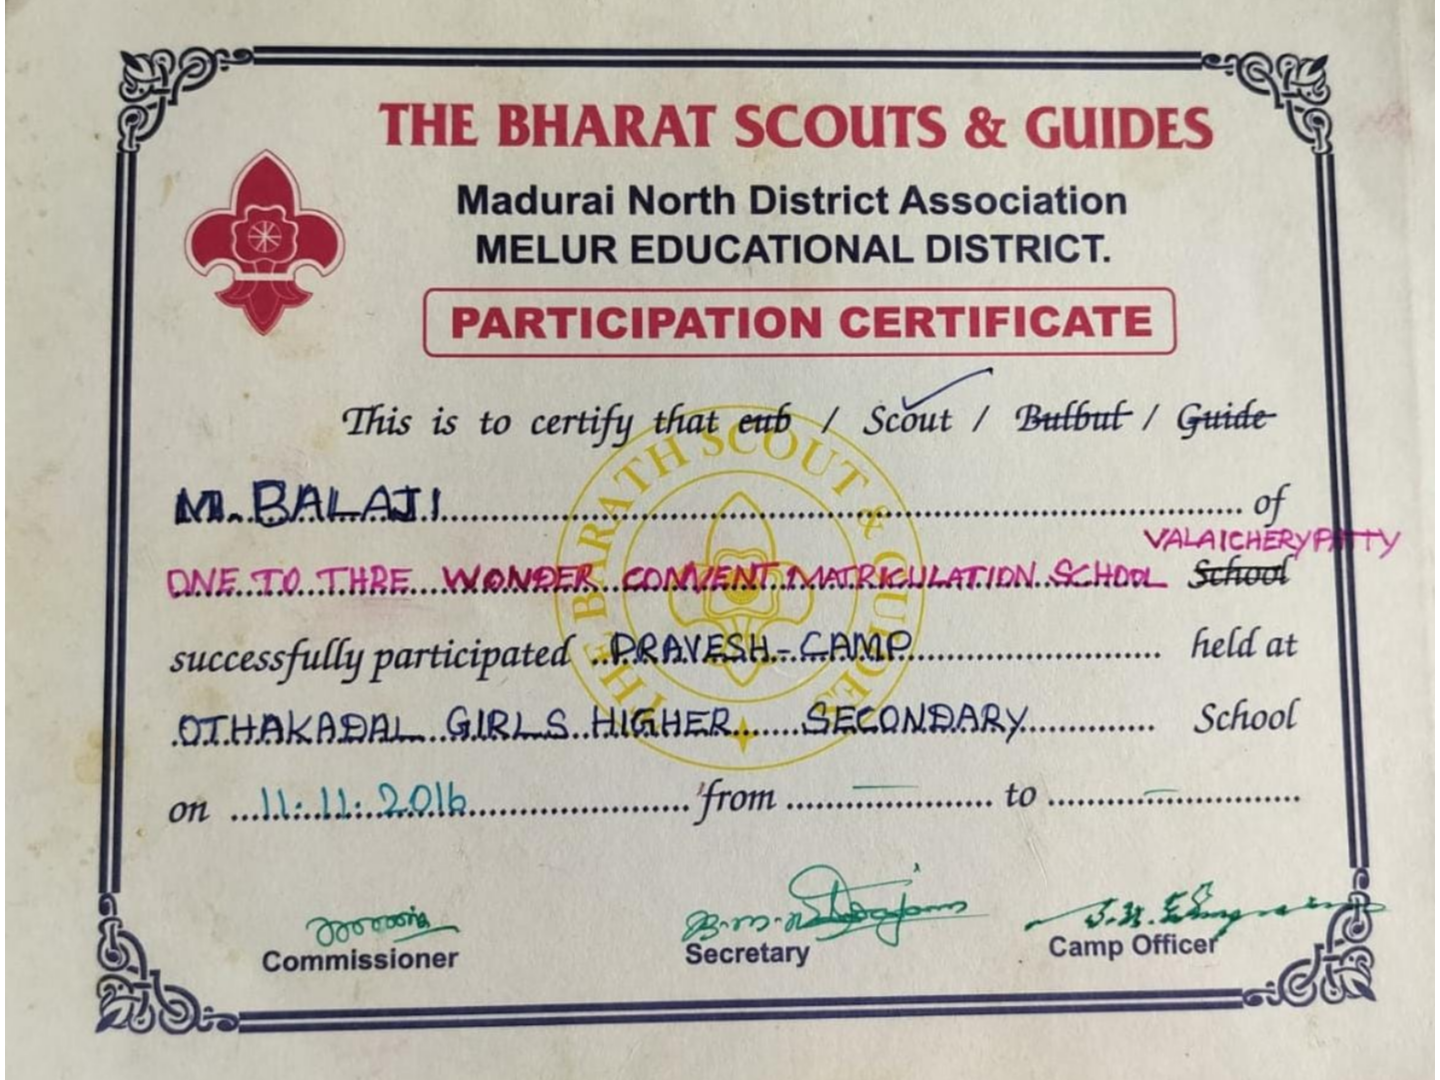 THE BHARAT SCOUTS & GUIDES
Madurai North District Association
MELUR EDUCATIONAL DISTRICT.
PARTICIPATION CERTIFICATE
This is to certify that cub / Scout / Bulbul / Guide
M. BALAJI of
VALAICHERYPATTY
ONE TO THRE WONDER CONVENT MATRICULATION SCHOOL School
successfully participated PRAVESH-CAMP held at
OTHAKADAL GIRLS HIGHER SECONDARY School
on 11.11.2016 from — to —
Commissioner Secretary Camp Officer
THE BHARATH SCOUT & GUIDES